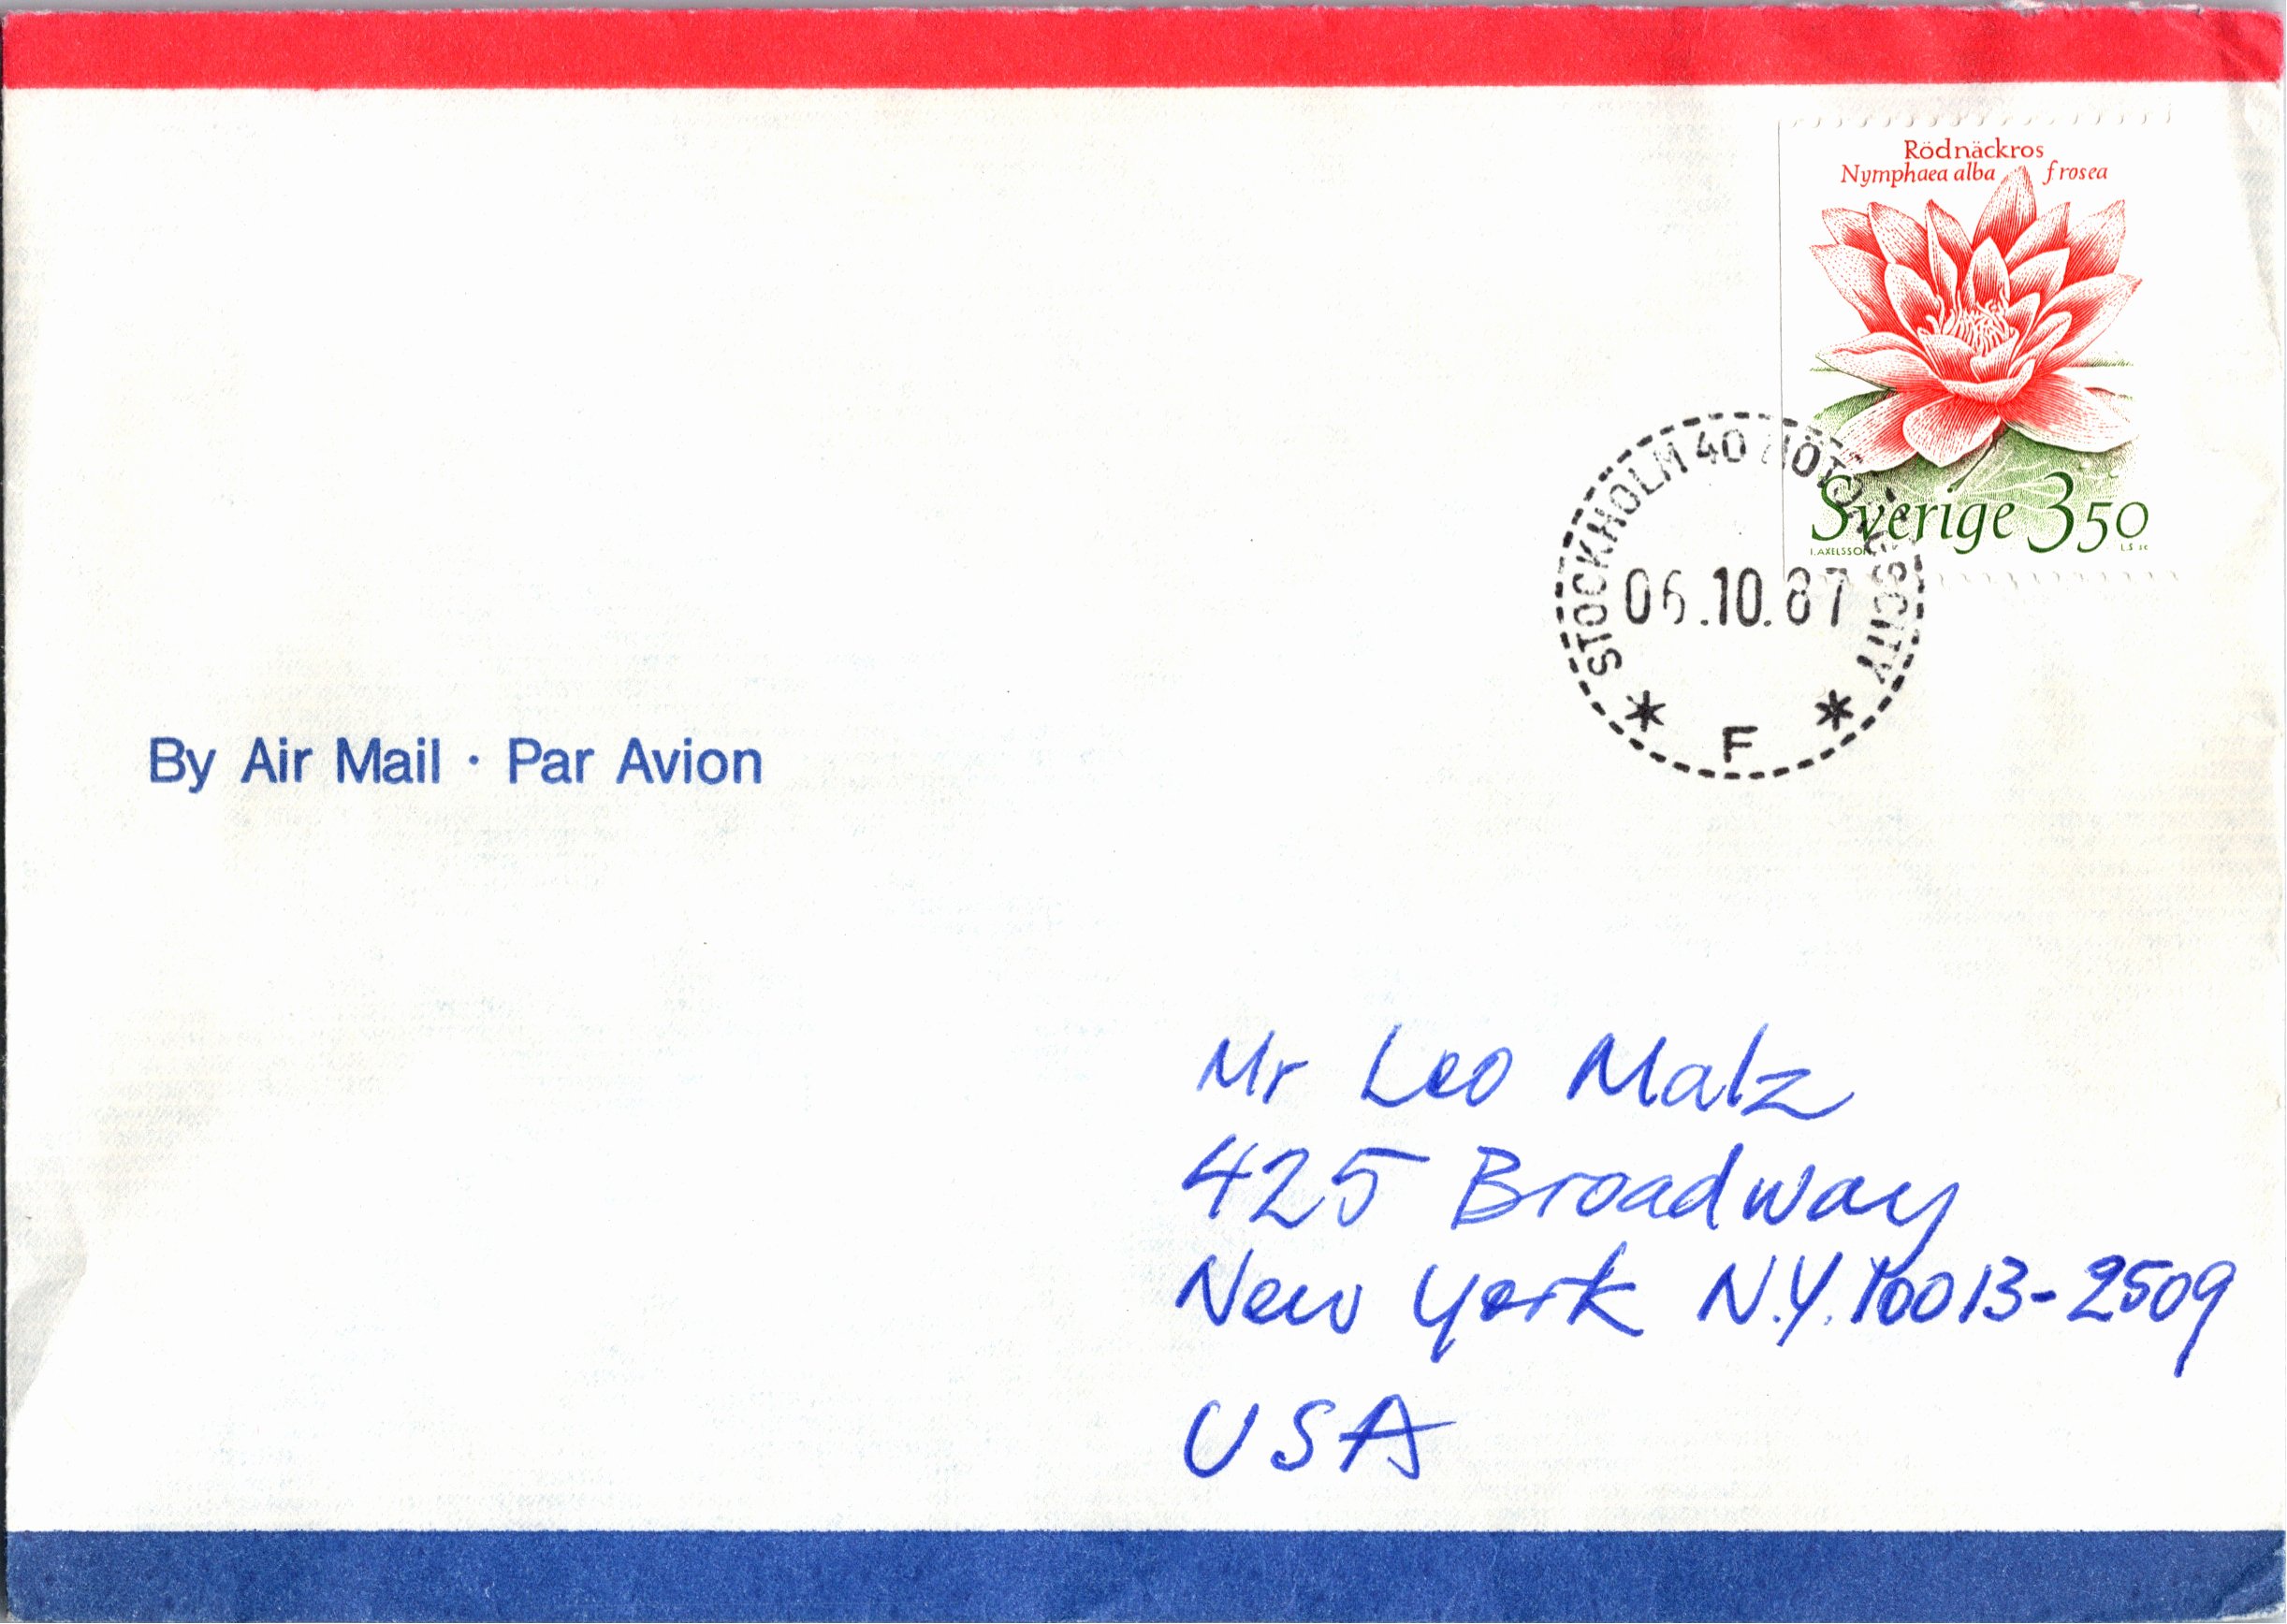 Rödnäckros
Nymphaea alba f rosea
Sverige 350
I. AXELSSON
STOCKHOLM 40 HÖTORGSCITY
06.10.87
* F *
By Air Mail · Par Avion
Mr Leo Malz
425 Broadway
New York N.Y. 10013-2509
USA